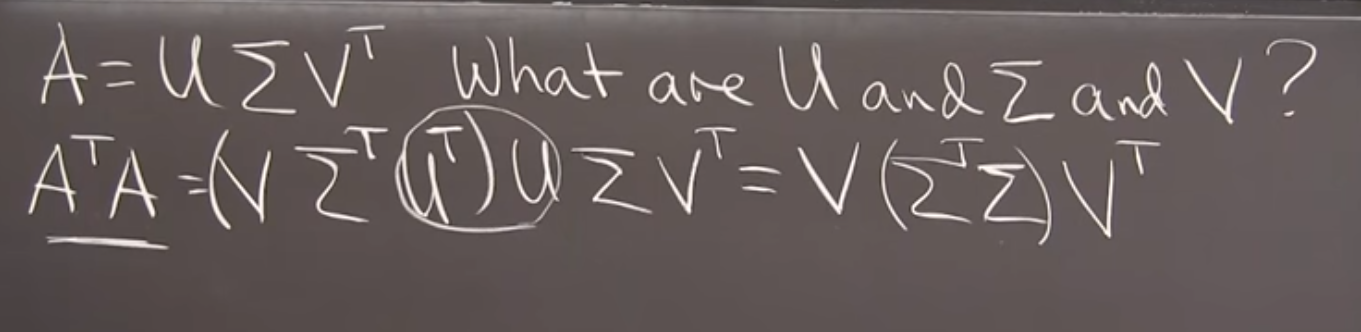 A = U Σ Vᵀ What are U and Σ and V?
AᵀA = (V Σᵀ Uᵀ) U Σ Vᵀ = V (ΣᵀΣ) Vᵀ